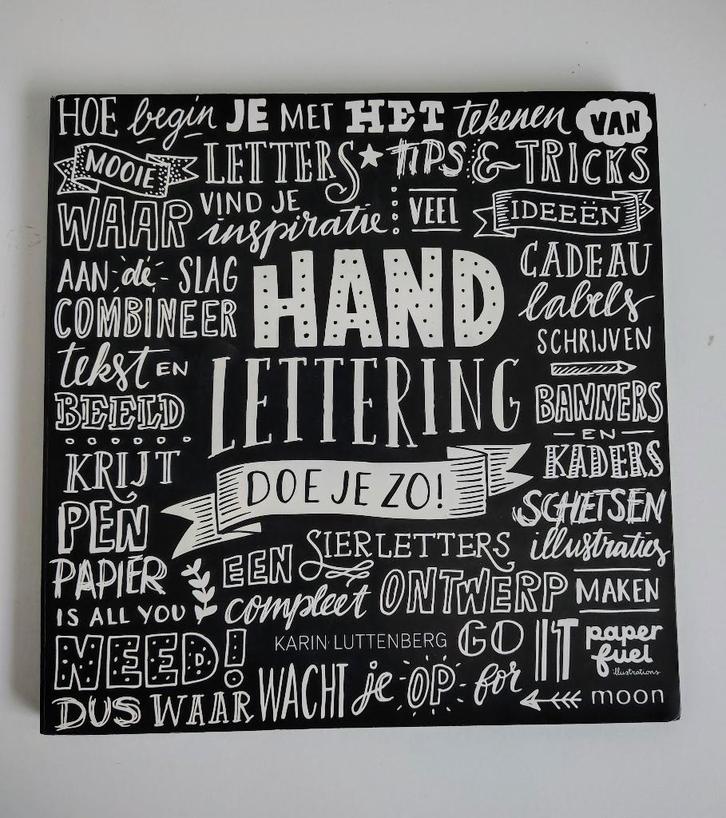 HOE begin JE MET HET tekenen VAN
MOOIE LETTERS TIPS & TRICKS
WAAR VIND JE inspiratie VEEL IDEEËN
AAN de SLAG
COMBINEER
tekst EN
BEELD
HAND
LETTERING
DOE JE ZO!
CADEAU
labels
SCHRIJVEN
BANNERS
EN
KADERS
SCHETSEN
illustraties
KRIJT
PEN
PAPIER
IS ALL YOU
NEED!
EEN SIERLETTERS
compleet ONTWERP MAKEN
KARIN LUTTENBERG
GO IT
paper
fuel
illustrations
DUS WAAR WACHT je OP for
moon